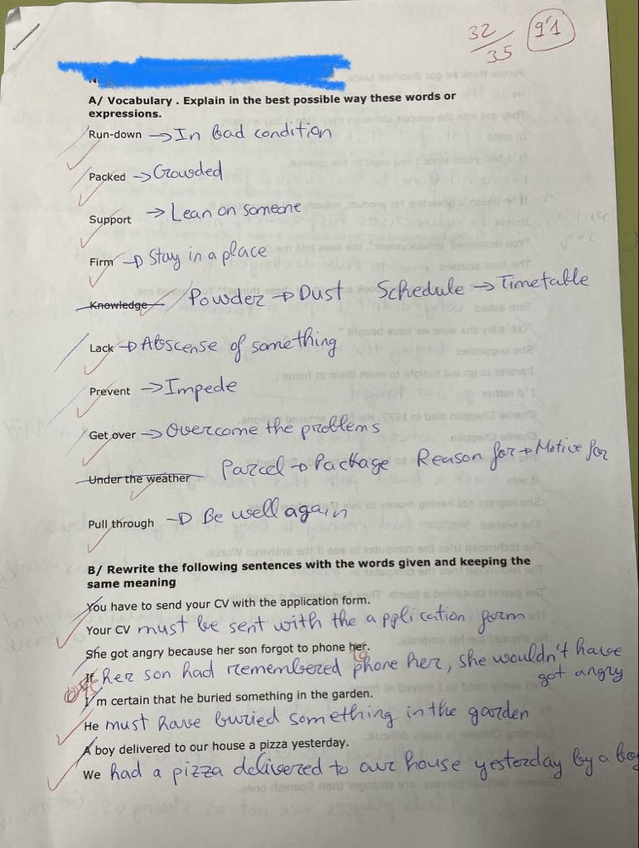 32/35 91
N.
A/ Vocabulary . Explain in the best possible way these words or
expressions.
Run-down → In bad condition
Packed → Crowded
Support → Lean on someone
Firm → Stay in a place
Knowledge Powder → Dust Schedule → Timetable
Lack → Abscense of something
Prevent → Impede
Get over → Overcome the problems
Under the weather Parcel → Package Reason for → Motive for
Pull through → Be well again
B/ Rewrite the following sentences with the words given and keeping the
same meaning
You have to send your CV with the application form.
Your CV must be sent with the application form
She got angry because her son forgot to phone her.
to
If her son had remembered phone her, she wouldn't have
got angry
I'm certain that he buried something in the garden.
He must have buried something in the garden
A boy delivered to our house a pizza yesterday.
We had a pizza delivered to our house yesterday by a boy